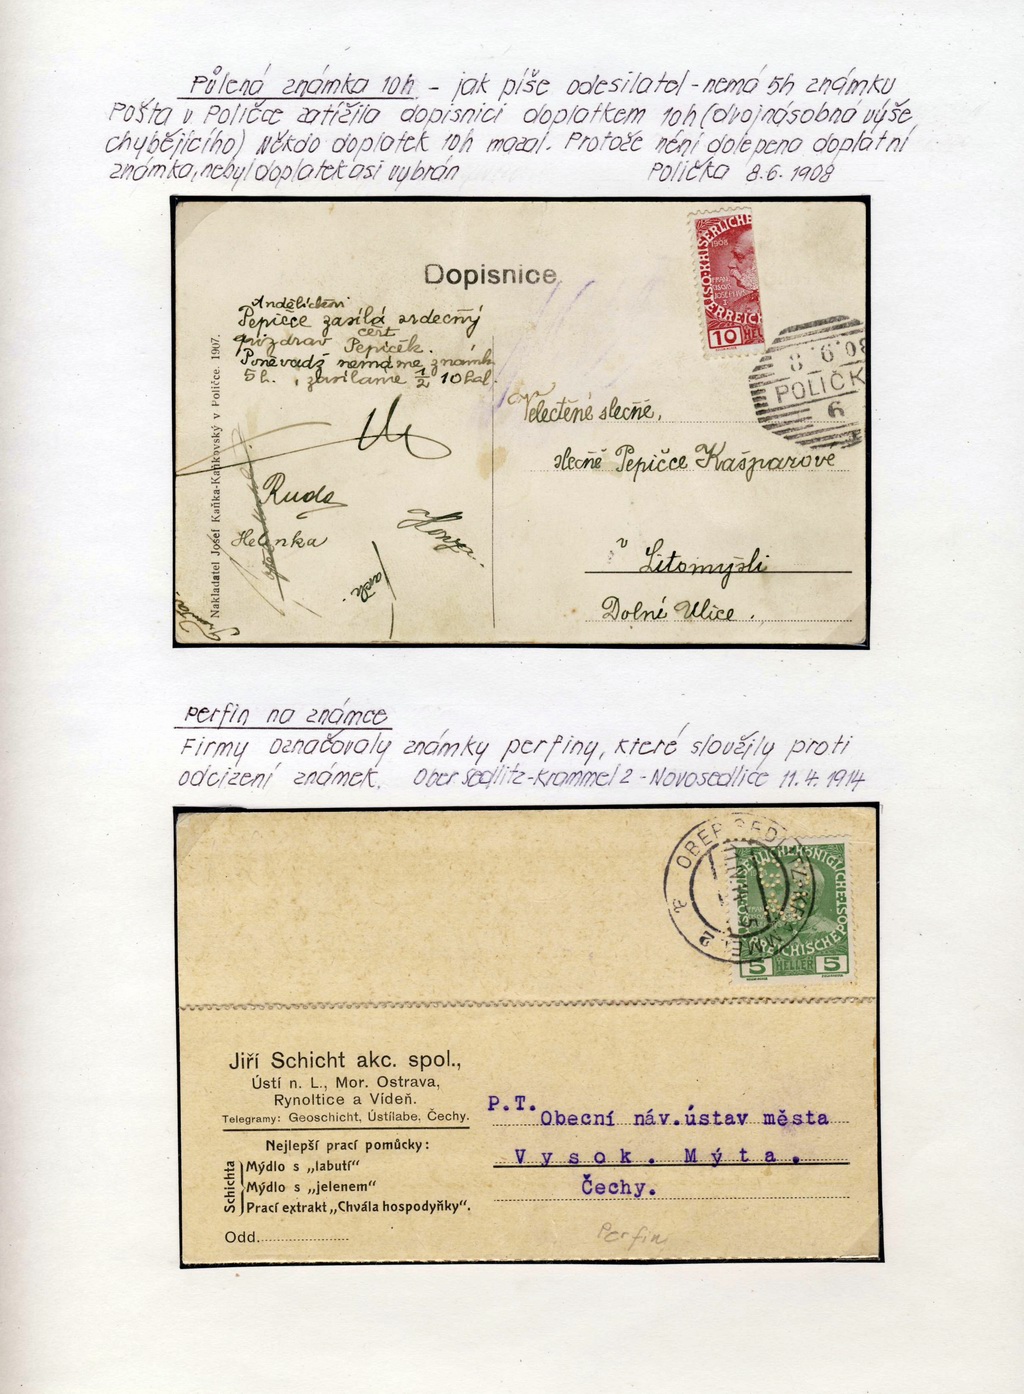 Půlená známka 10h - jak píše odesilatel - nemá 5h známku
Pošta v Poličce zatížila dopisnici doplatkem 10h (dvojnásobná výše
chybějícího) Někdo doplatek 10h mazal. Protože není dolepena doplatní
známka, nebyl doplatek asi vybrán Polička 8.6.1908
Dopisnice
Andělíčkovi
Pepičce zasílá srdečný
čert
pozdrav Pepíček.
Poněvadž nemáme známk
5 h., zasíláme 1/2 10 hal.
Ruda
Helenka
Honza
Nakladatel Josef Kaňka-Kaňkovský v Poličce. 1907.
1908
10 HEL
8 6 08
POLIČK
6
Velectěné slečně,
slečně Pepičce Kašparove
v Litomyšli
Dolní Ulice.
Perfin na známce
Firmy označovaly známky perfiny, které sloužily proti
odcizení známek. Obersedlitz-Krammel 2 - Novosedlice 11.4.1914
OBERSEDLITZ-KRAMMEL 2
5 HELLER 5
Jiří Schicht akc. spol.,
Ústí n. L., Mor. Ostrava,
Rynoltice a Vídeň.
Telegramy: Geoschicht, Ústilabe, Čechy.
Nejlepší prací pomůcky:
Schichta
Mýdlo s „labutí"
Mýdlo s „jelenem"
Prací extrakt „Chvála hospodyňky".
Odd.
P.T. Obecní náv.ústav města
Vysok. Mýta.
Čechy.
Perfin